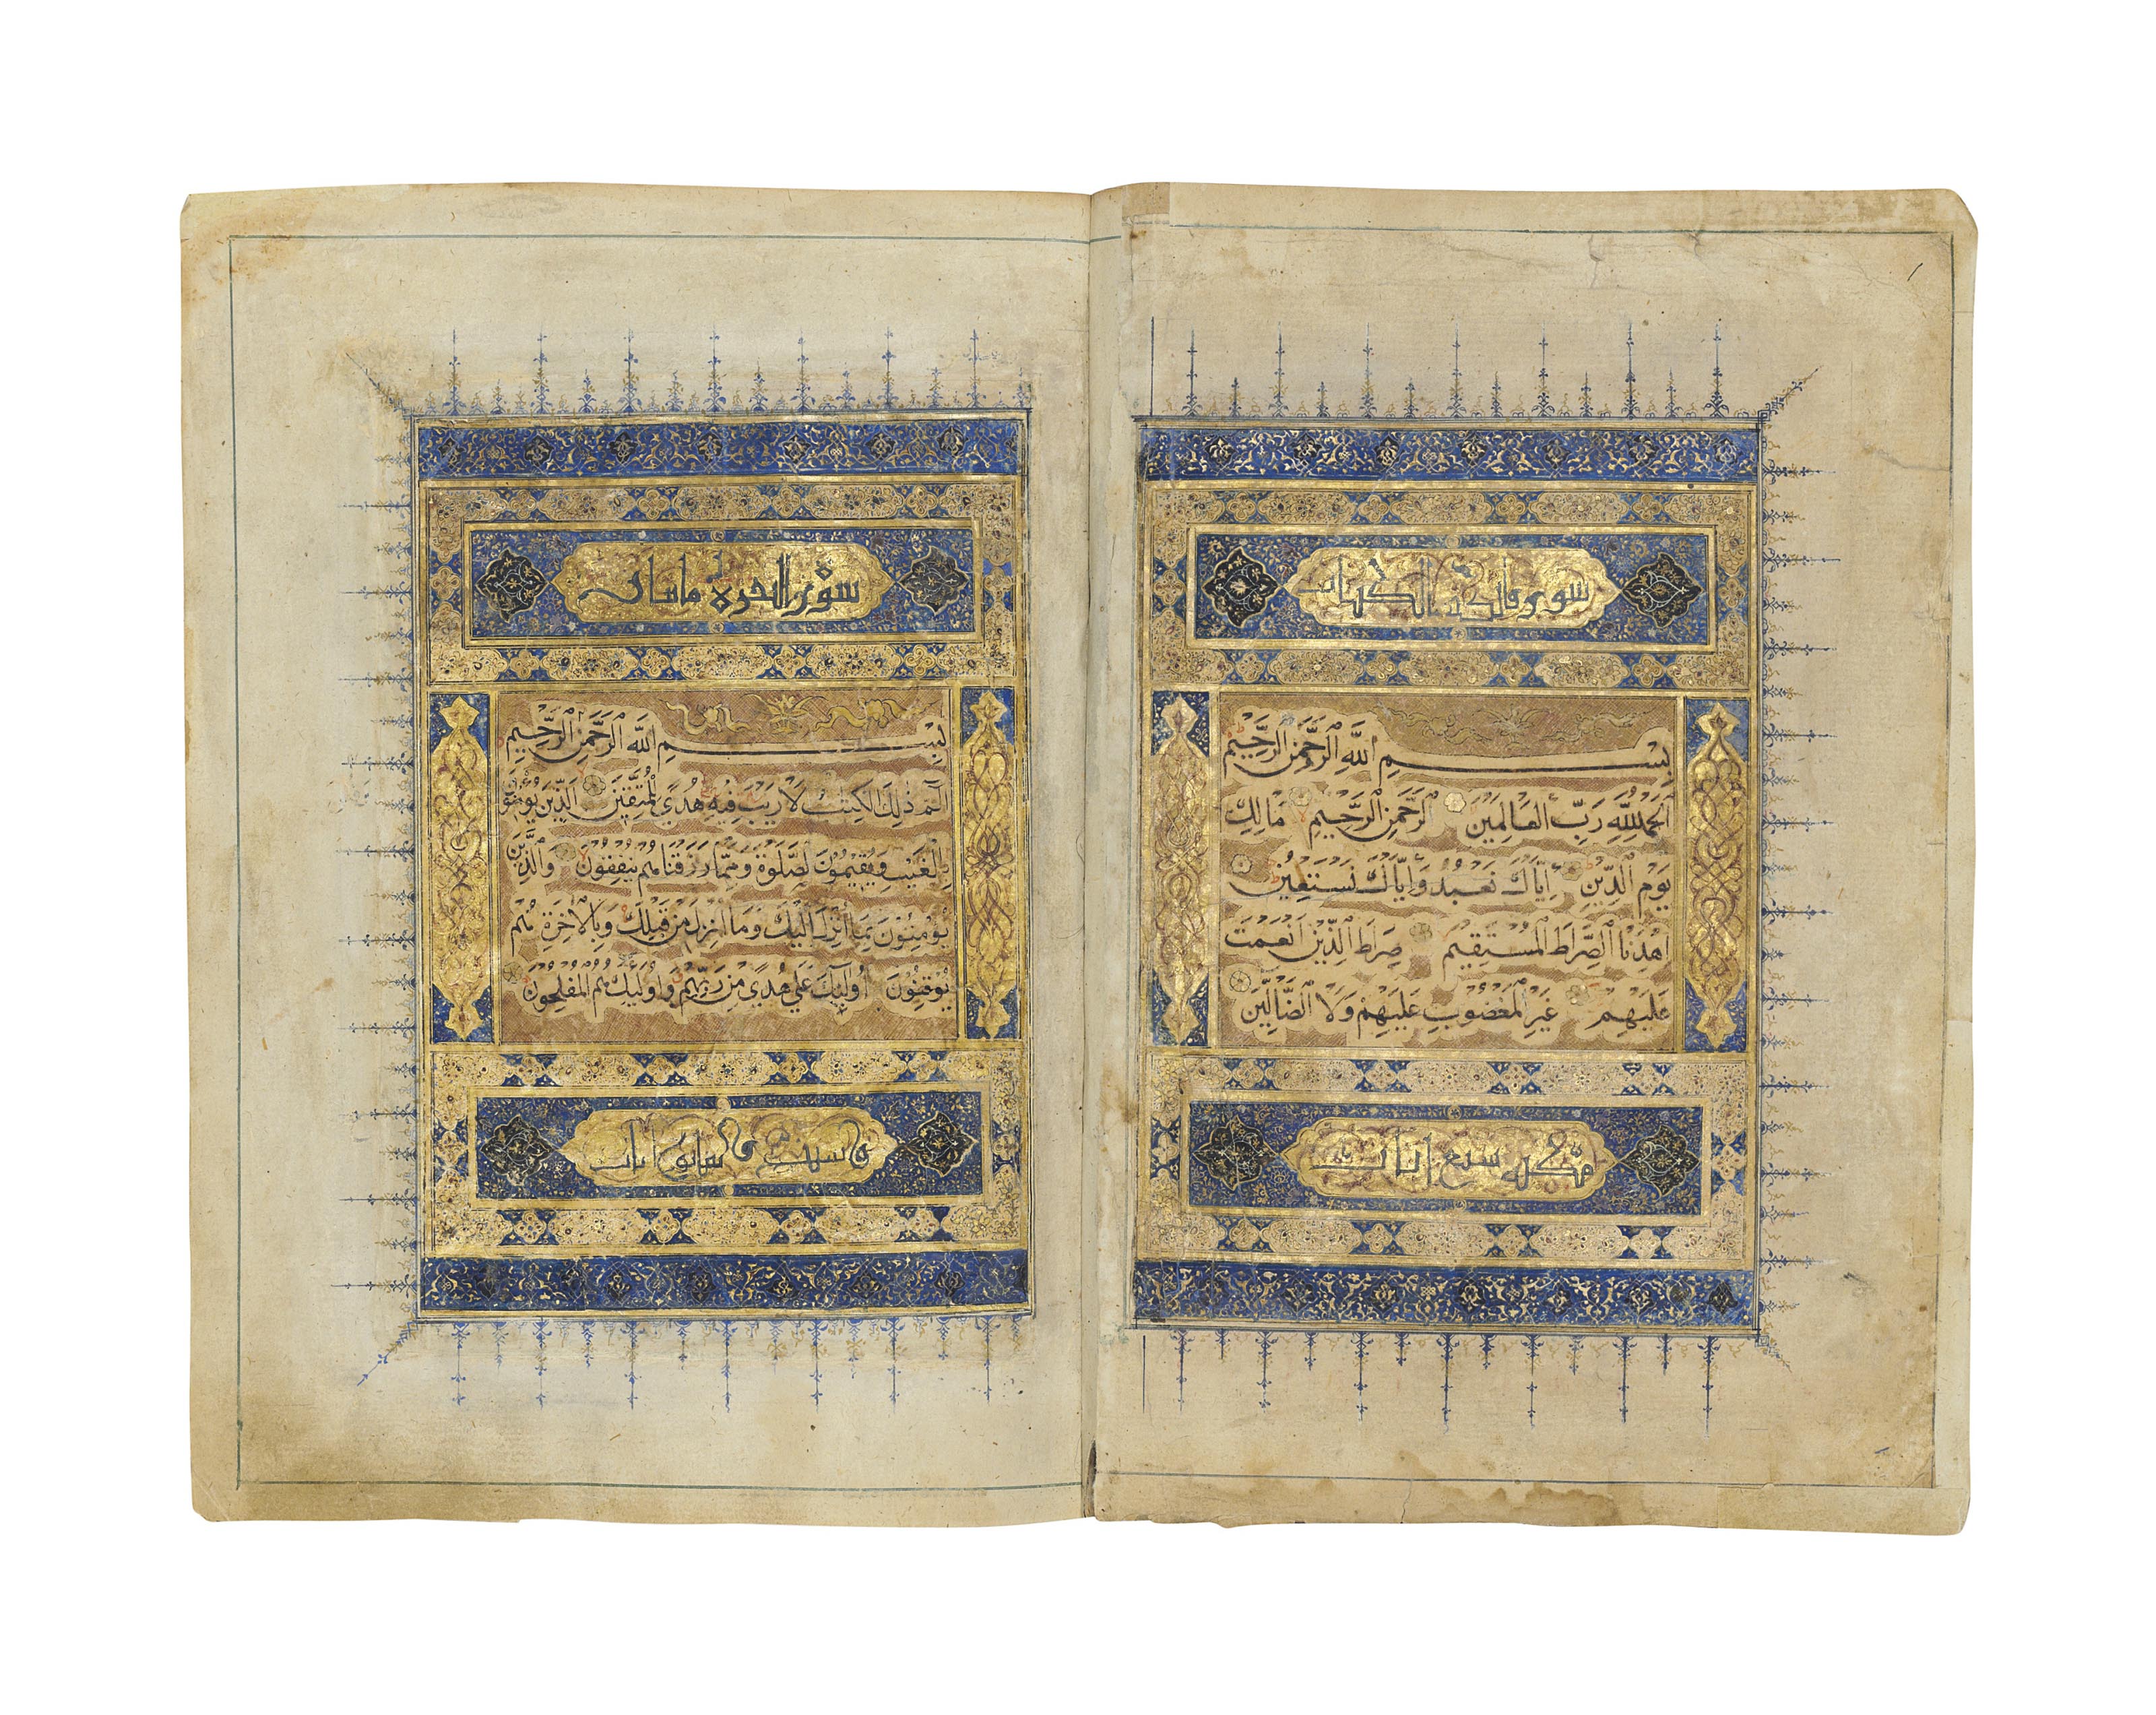 سورة فاتحة الكتاب
بِسْمِ اللَّهِ الرَّحْمَنِ الرَّحِيمِ
اَلْحَمْدُ لِلَّهِ رَبِّ الْعَالَمِينَ الرَّحْمَنِ الرَّحِيمِ مَالِكِ
يَوْمِ الدِّينِ إِيَّاكَ نَعْبُدُ وَإِيَّاكَ نَسْتَعِينُ
اِهْدِنَا الصِّرَاطَ الْمُسْتَقِيمَ صِرَاطَ الَّذِينَ أَنْعَمْتَ
عَلَيْهِمْ غَيْرِ الْمَغْضُوبِ عَلَيْهِمْ وَلَا الضَّالِّينَ
مكية سبع ايات
سورة البقرة مائتان
بِسْمِ اللَّهِ الرَّحْمَنِ الرَّحِيمِ
الٓمٓ ذَلِكَ الْكِتَبُ لَا رَيْبَ فِيهِ هُدًى لِلْمُتَّقِينَ الَّذِينَ يُؤْمِنُونَ
بِالْغَيْبِ وَيُقِيمُونَ الصَّلَوةَ وَمِمَّا رَزَقْنَاهُمْ يُنْفِقُونَ وَالَّذِينَ
يُؤْمِنُونَ بِمَا أُنْزِلَ إِلَيْكَ وَمَا أُنْزِلَ مِنْ قَبْلِكَ وَبِالْآخِرَةِ هُمْ
يُوقِنُونَ أُولَئِكَ عَلَى هُدًى مِنْ رَبِّهِمْ وَأُولَئِكَ هُمُ الْمُفْلِحُونَ
ايات